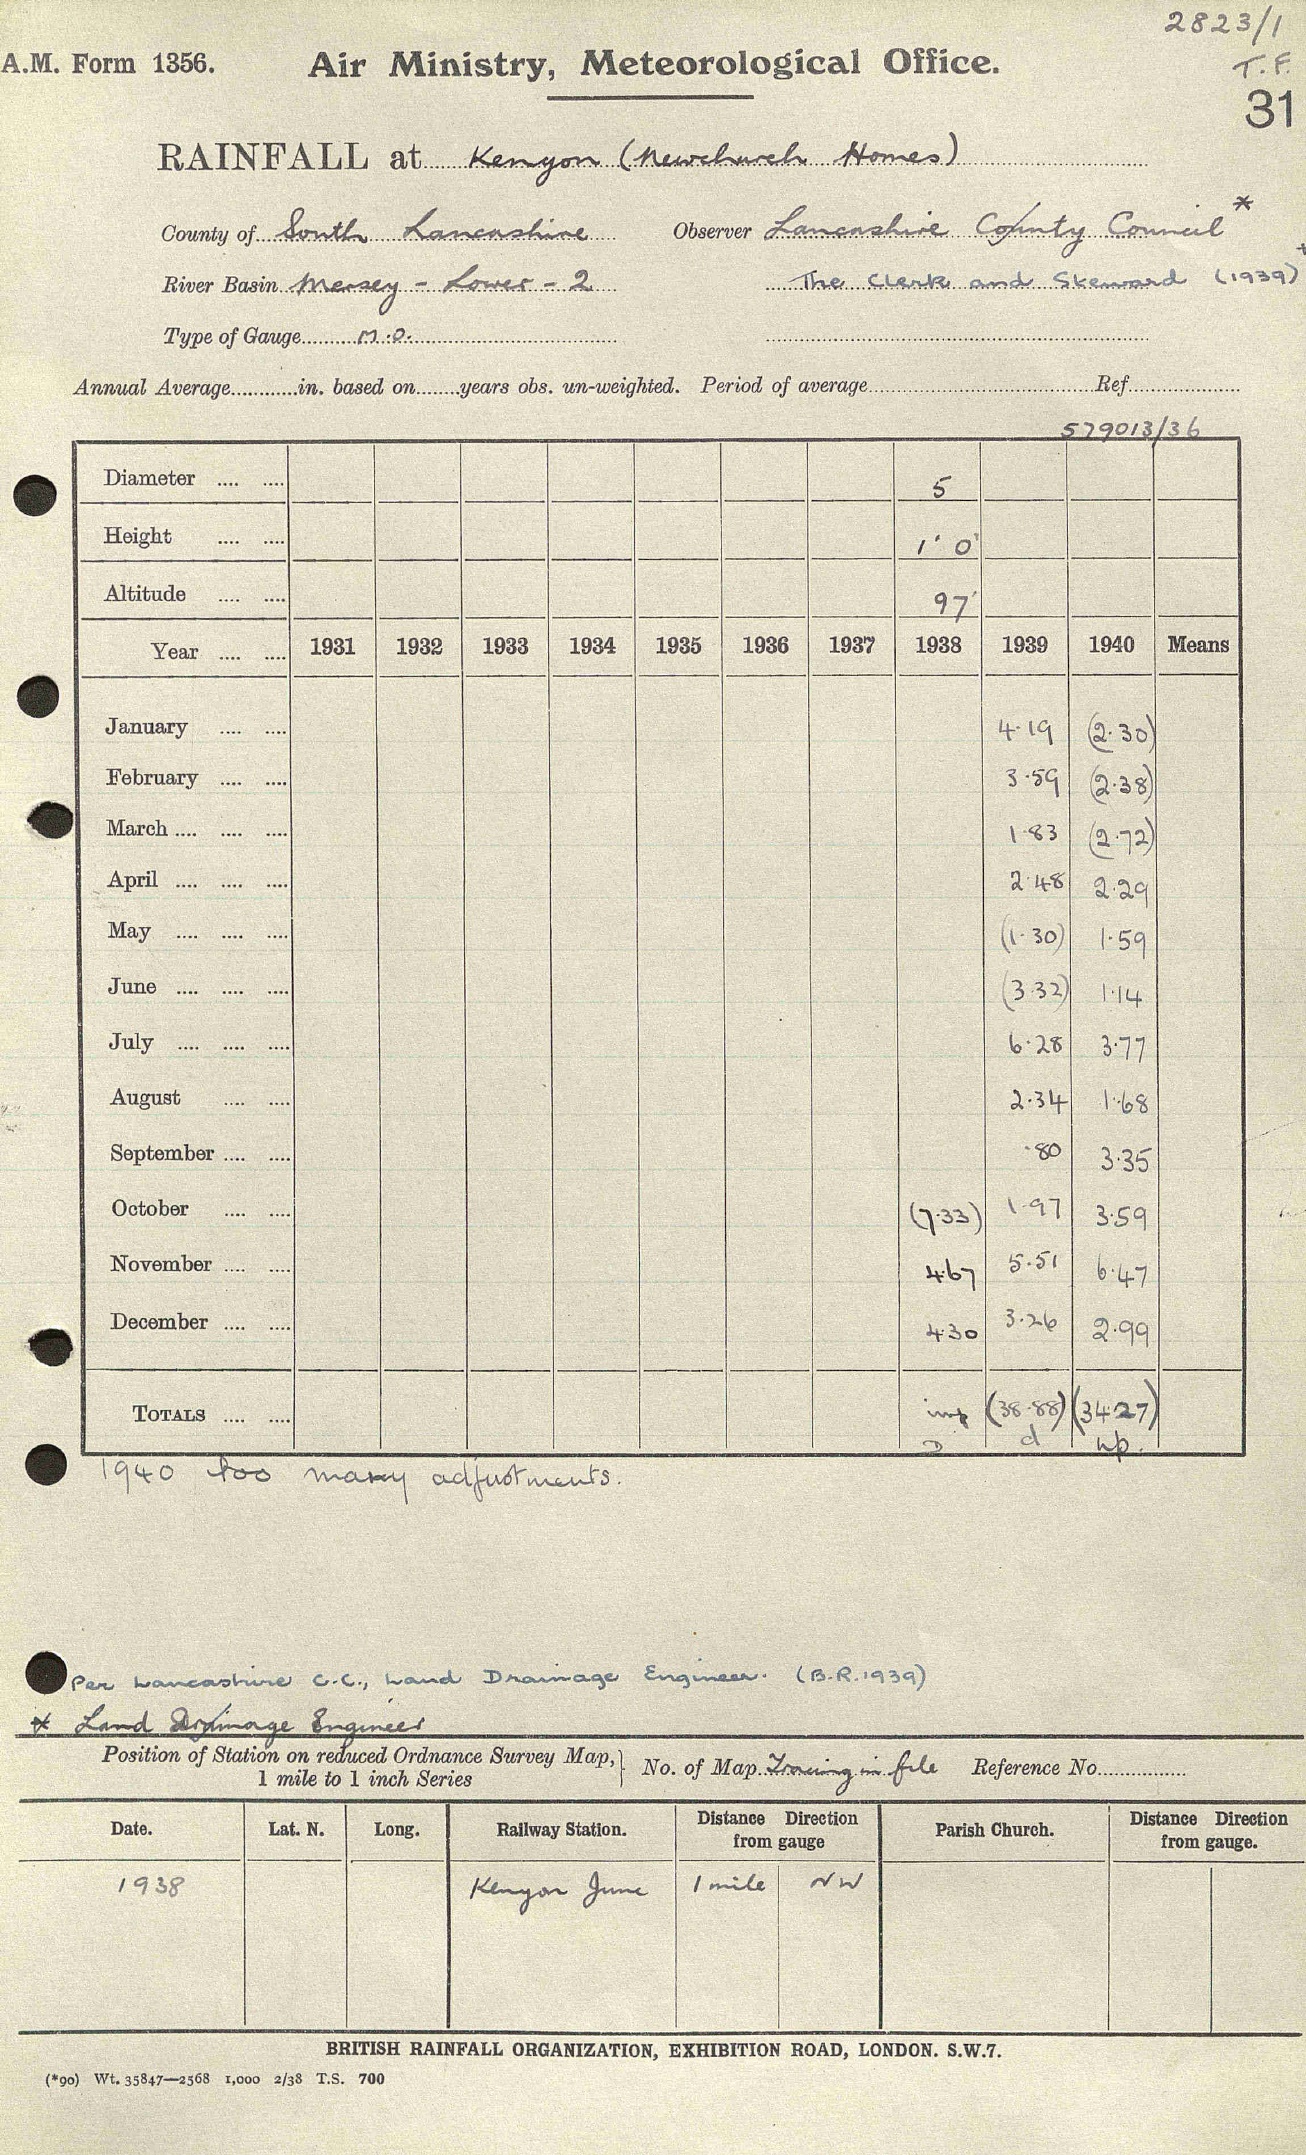 2823/1
T.F.
A.M. Form 1356. Air Ministry, Meteorological Office.
31
RAINFALL at Kenyon (Newchurch Homes)
County of South Lancashire Observer Lancashire County Council *
River Basin Mersey - Lower - 2 The Clerk and Steward (1939) +
Type of Gauge M.O.
Annual Average in. based on years obs. un-weighted. Period of average Ref.
579013/36
Diameter .... .... 5
Height .... .... 1' 0"
Altitude .... .... 97'
Year .... .... 1931 1932 1933 1934 1935 1936 1937 1938 1939 1940 Means
January .... .... 4.19 (2.30)
February .... .... 3.59 (2.38)
March .... .... .... 1.83 (2.72)
April .... .... .... 2.48 2.29
May .... .... .... (1.30) 1.59
June .... .... .... (3.32) 1.14
July .... .... .... 6.28 3.77
August .... .... 2.34 1.68
September .... .... .80 3.35
October .... .... (7.33) 1.97 3.59
November .... .... 4.67 5.51 6.47
December .... .... 4.30 3.26 2.99
TOTALS .... .... imp (38.88) (34.27)
d np.
1940 too many adjustments.
Per Lancashire C.C., Land Drainage Engineer. (B.R.1939)
* Land Drainage Engineer
Position of Station on reduced Ordnance Survey Map, } No. of Map Tracing in file Reference No.
1 mile to 1 inch Series
Date. Lat. N. Long. Railway Station. Distance Direction from gauge Parish Church. Distance Direction from gauge.
1938 Kenyon Junc 1 mile NW
BRITISH RAINFALL ORGANIZATION, EXHIBITION ROAD, LONDON. S.W.7.
(*90) Wt. 35847—2568 1,000 2/38 T.S. 700